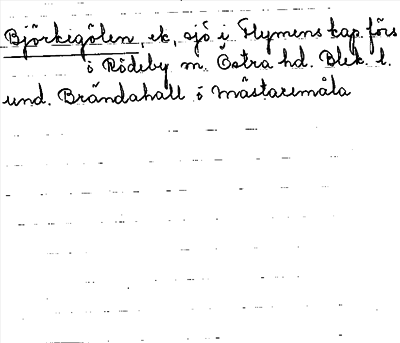 Björkigölen, ek, sjö i Flymens kap. förs
i Rödeby sn. Östra hd. Blek. l.
und. Brändahall ö Mästaremåla